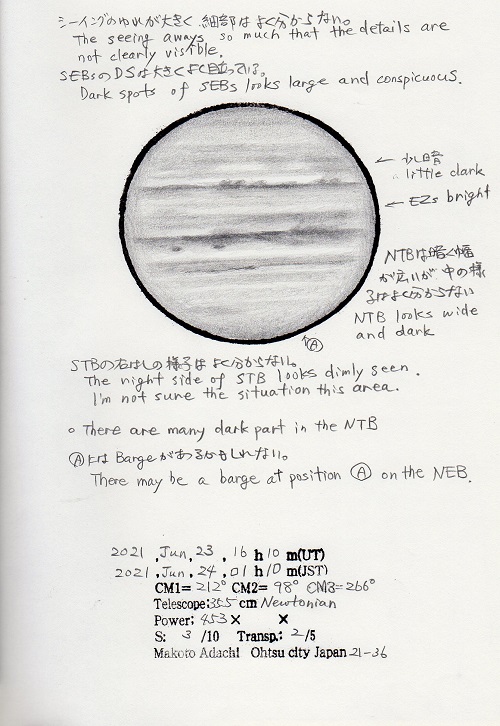 シーイングのゆれが大きく細部はよく分からない。
The seeing aways so much that the details are
not clearly visible.
SEBsのDSは大きくよく目立っている。
Dark spots of SEBs looks large and conspicuous.
← 少し暗
a little dark
← EZs bright
NTBは暗く幅
が広いが中の様
子はよく分からない
NTB looks wide
and dark
↖Ⓐ
STBの右はしの様子はよく分からない。
The right side of STB looks dimly seen.
I'm not sure the situation this area.
○ There are many dark part in the NTB
ⒶにはBargeがあるかもしれない。
There may be a barge at position Ⓐ on the NEB.
2021 ,Jun, 23 , 16 h 10 m(UT)
2021 ,Jun, 24 , 01 h 10 m(JST)
CM1= 212° CM2= 98° CM3=266°
Telescope:355 cm Newtonian
Power: 453 × ×
S: 3 /10 Transp.: 2 /5
Makoto Adachi Ohtsu city Japan 21-36